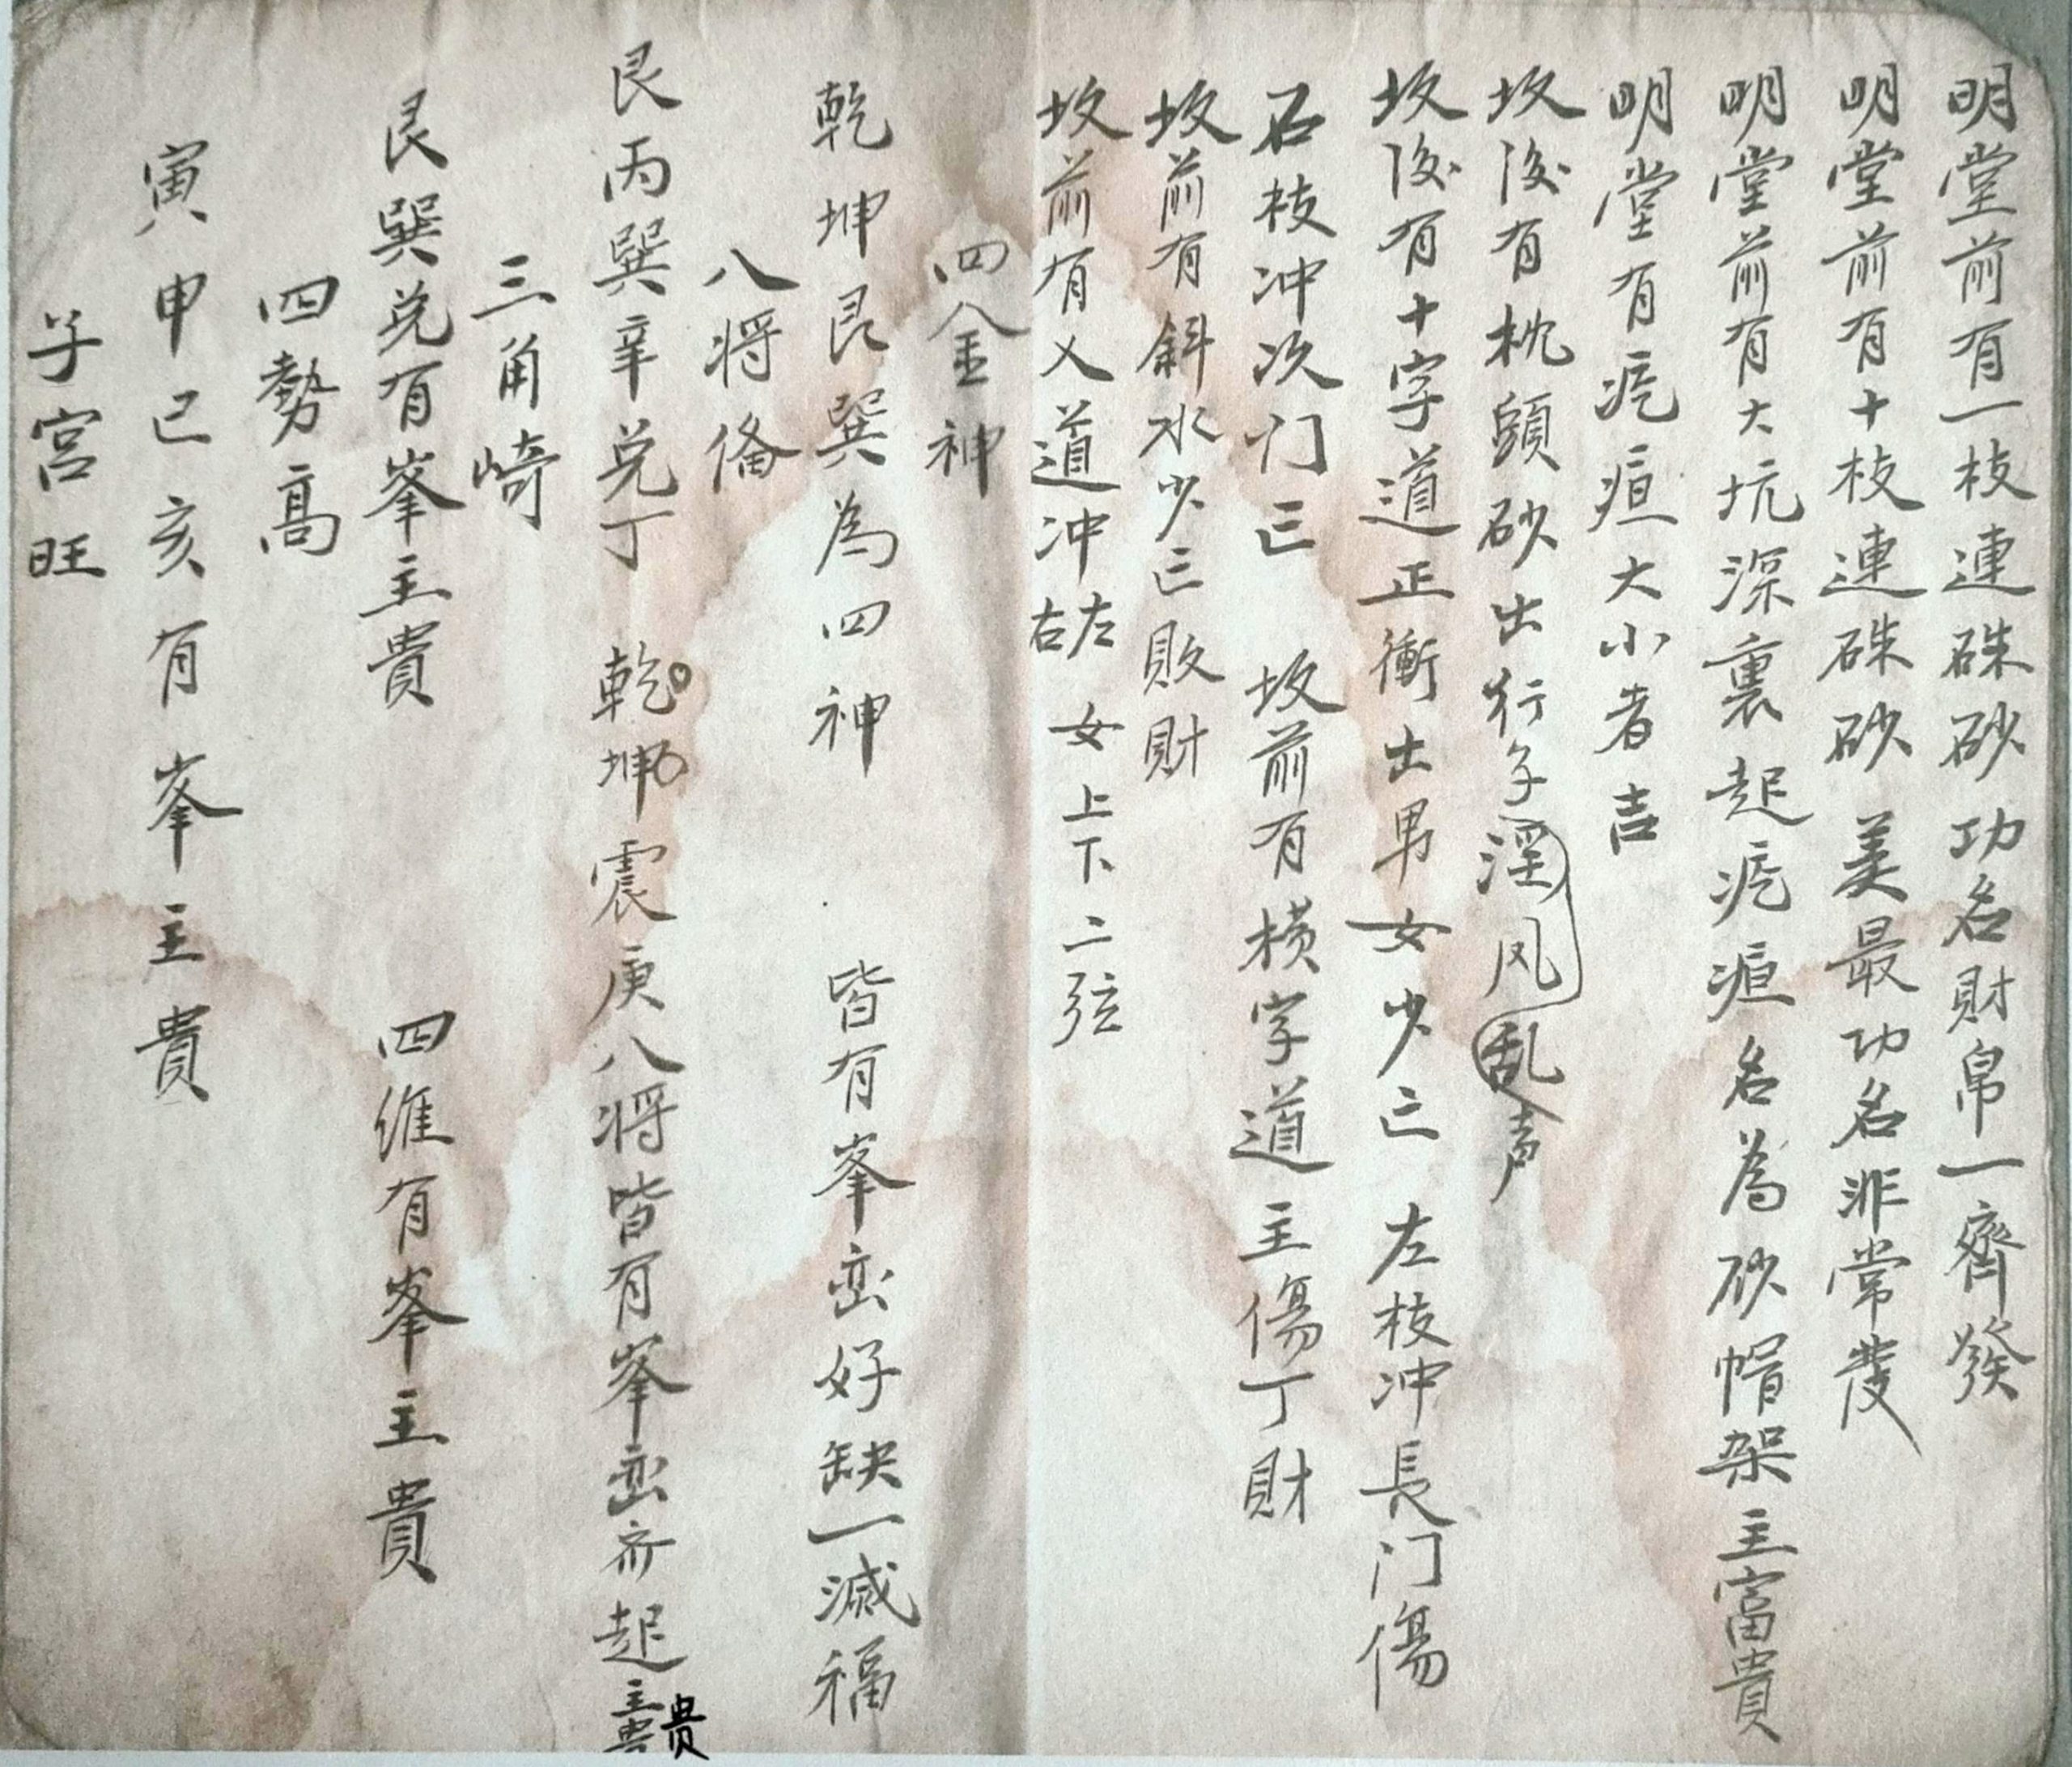 明堂前有一枝連硃砂功名財帛一齊發
明堂前有十枝連硃砂 美最功名非常發
明堂前有大坑深裏起疙疸名為砂帽架主富貴
明堂有疙疸大小者吉
坟後有枕頭砂出行子淫风乱声
坟後有十字道正衝出男女少亡 左枝冲長门傷
右枝冲次门亡 坟前有横字道主傷丁財
坟前有斜水少亡敗財
坟前有乂道冲左右 女上下二弦
四金神
乾坤艮巽為四神 皆有峯峦好缺一减福
八將备
艮丙巽辛兑丁 乾坤震庚八将皆有峯峦斉起主贵
三角崎
艮巽兑有峯主貴 四維有峯主貴
四勢高
寅申巳亥有峯主貴
子宫旺